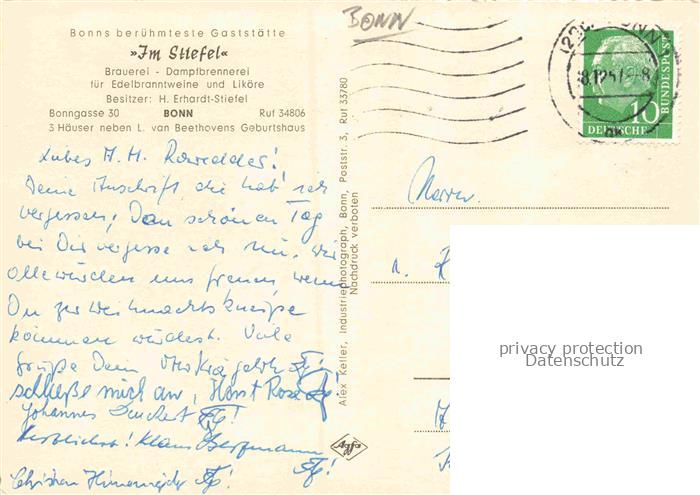 Bonns berühmteste Gaststätte
»Im Stiefel«
Brauerei - Dampfbrennerei
für Edelbranntweine und Liköre
Besitzer: H. Erhardt-Stiefel
Bonngasse 30 BONN Ruf 34806
3 Häuser neben L. van Beethovens Geburtshaus
Liebes A. H.
Deine Anschrift die hab' ich
vergessen, Den schönen Tag
bei Dir vergesse ich nie. Wir
alle würden uns freuen, wenn
Du zur Weihnachtskneipe
kommen würdest. Viele
Grüße Dein
schließe mich an, Horst Rose
Johannes
Herzlichst! Klaus Bergmann
Christian
Alex Keller, Industriephotograph, Bonn, Poststr. 3, Ruf 33780
Nachdruck verboten
Agfa
BONN
DEUTSCHE BUNDESPOST
10
Herrn
privacy protection
Datenschutz